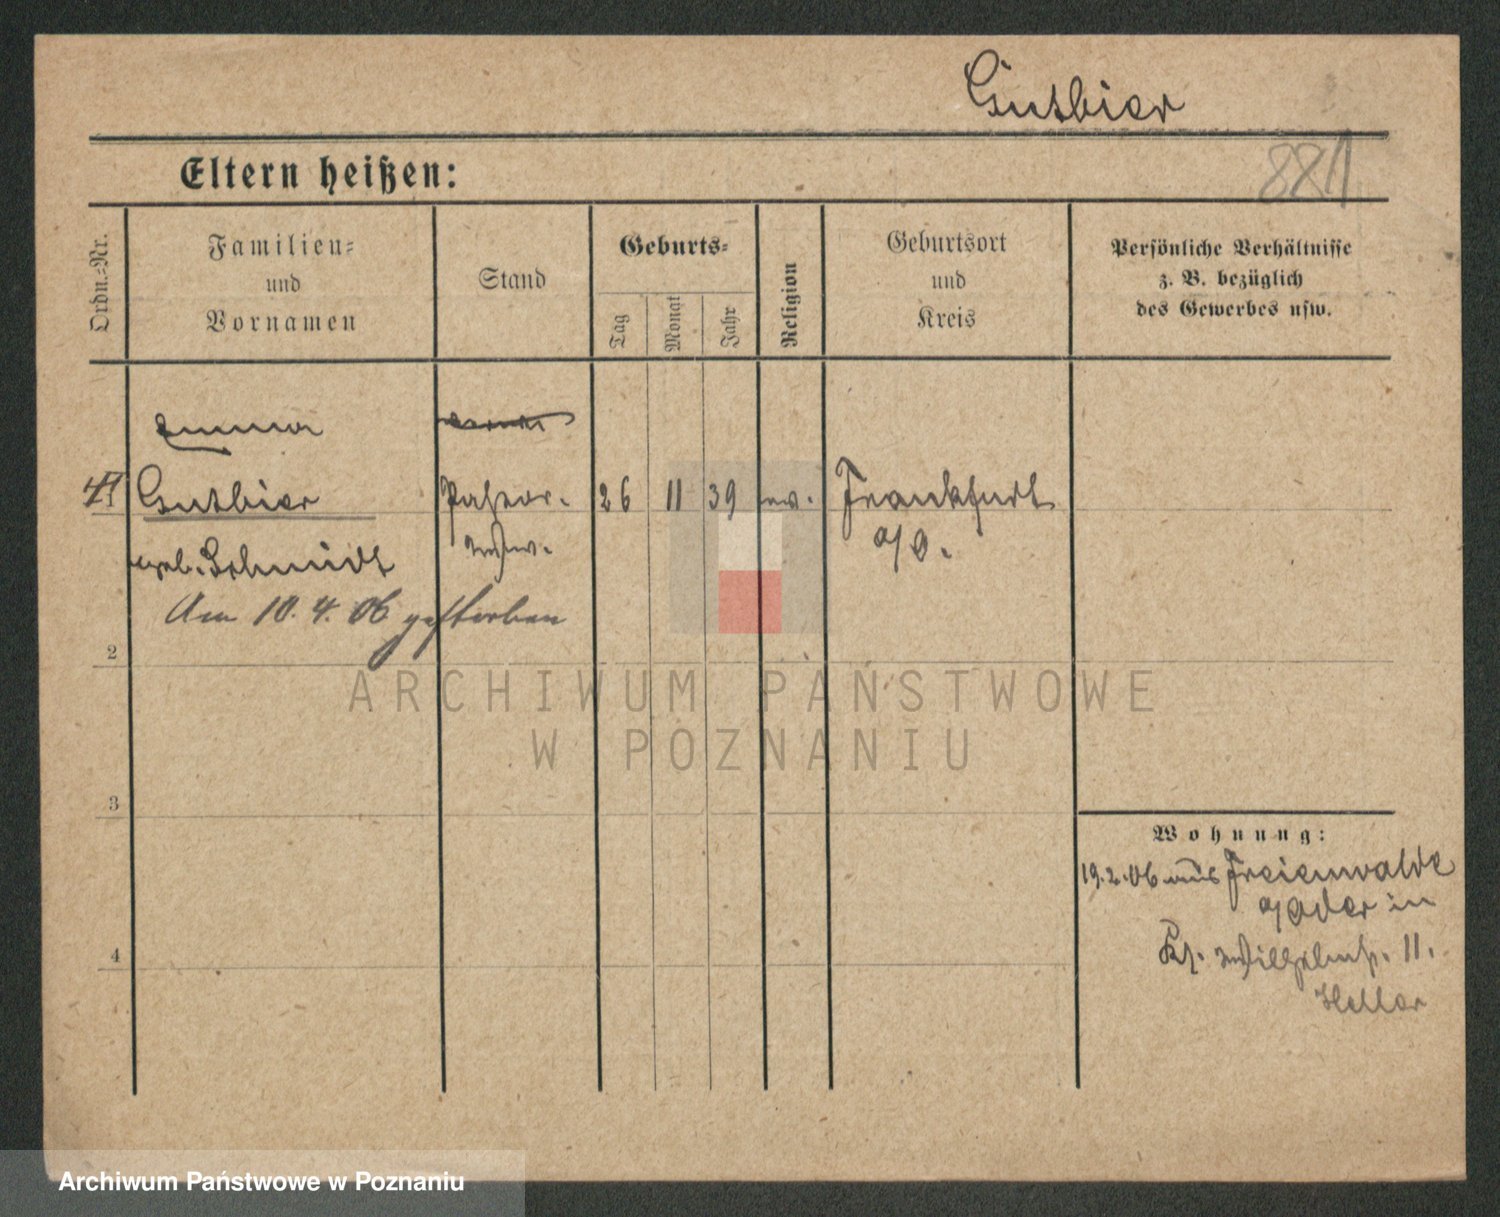 Gutbier
881
Eltern heißen:
Ordn.=Nr.
Familien=
und
Vornamen
Stand
Geburts=
Tag
Monat
Jahr
Religion
Geburtsort
und
Kreis
Persönliche Verhältnisse
z. B. bezüglich
des Gewerbes usw.
Emma
Gutbier Pastor. 26 11 39 ev. Frankfurt
geb. Schmidt Wwe. a/O.
Am 10. 4. 06 gestorben
2
3
4
Wohnung:
19.2.06 aus Freienwalde
a/Oder in
Wilhelmstr. 11.
Heller
ARCHIWUM PAŃSTWOWE
W POZNANIU
Archiwum Państwowe w Poznaniu